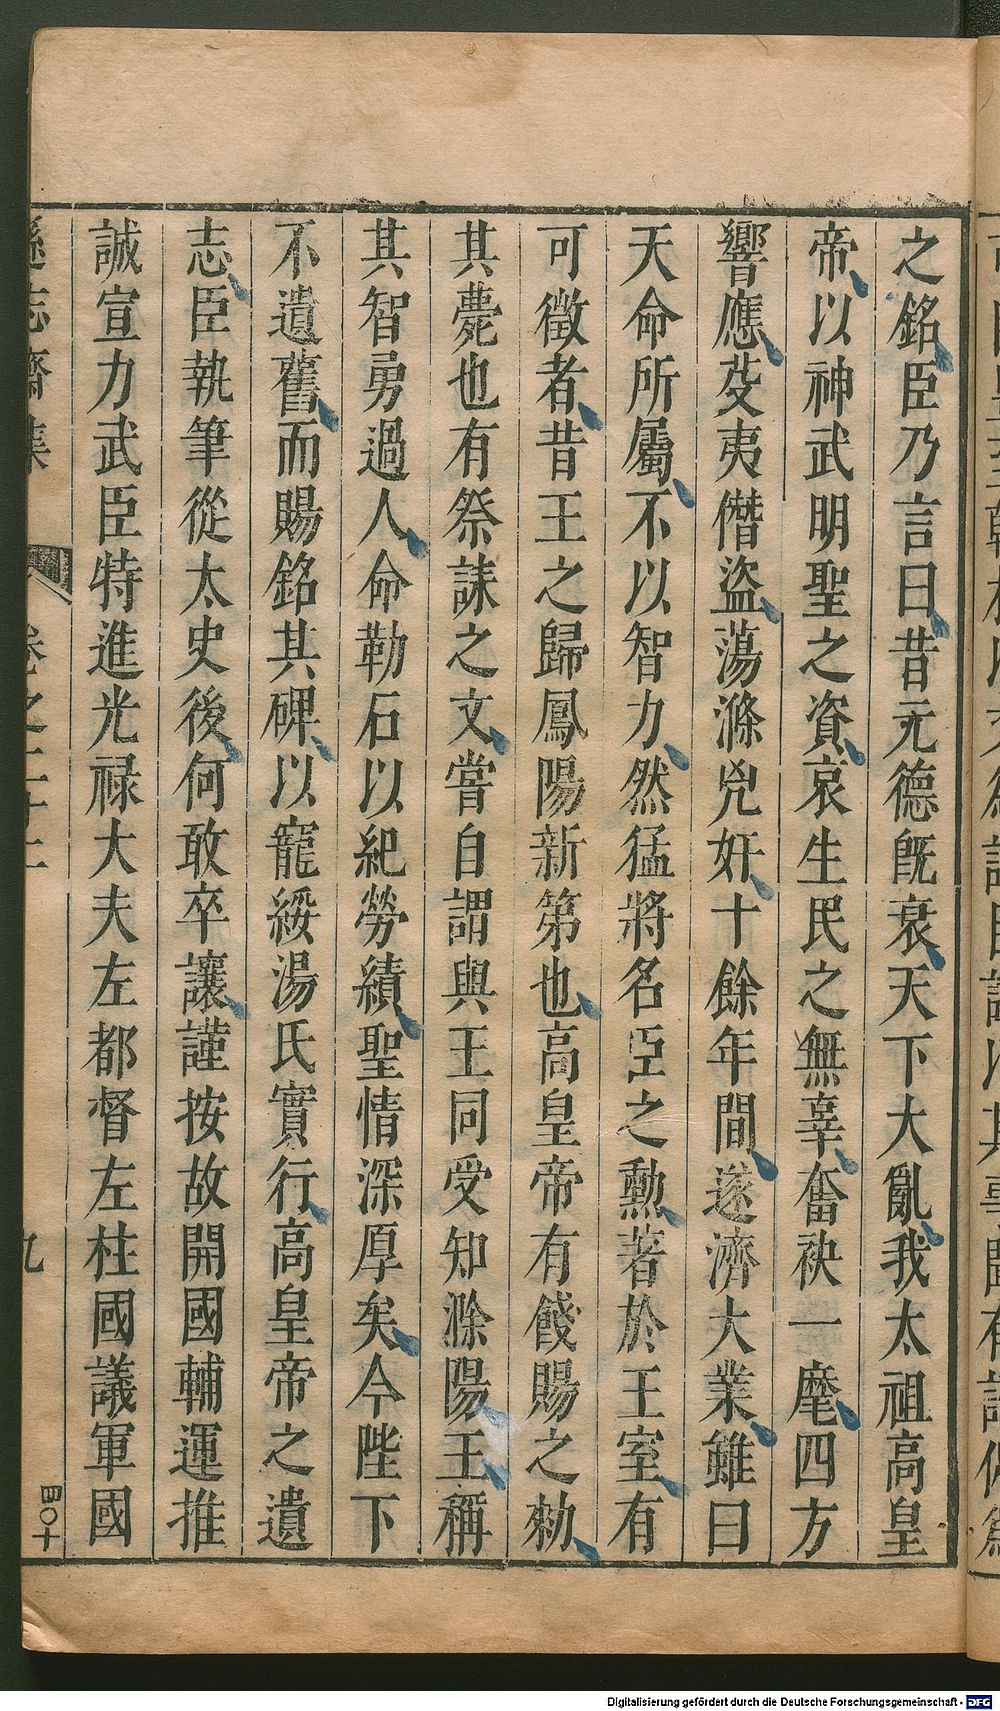 之銘臣乃言曰昔元德旣衰天下大亂我太祖高皇
帝以神武明聖之資哀生民之無辜奮袂一麾四方
響應芟夷僭盜蕩滌兇奸十餘年間遂濟大業雖曰
天命所屬不以智力然猛將名臣之勲著於王室有
可徵者昔王之歸鳳陽新第也高皇帝有餞賜之勑
其薨也有祭誄之文嘗自謂與王同受知滁陽王稱
其智勇過人命勒石以紀勞績聖情深厚矣今陛下
不遺舊而賜銘其碑以寵綏湯氏實行高皇帝之遺
志臣執筆從太史後何敢卒讓謹按故開國輔運推
誠宣力武臣特進光禄大夫左都督左柱國議軍國
遜志齋集 卷之二十二 九 四〇十
Digitalisierung gefördert durch die Deutsche Forschungsgemeinschaft - DFG